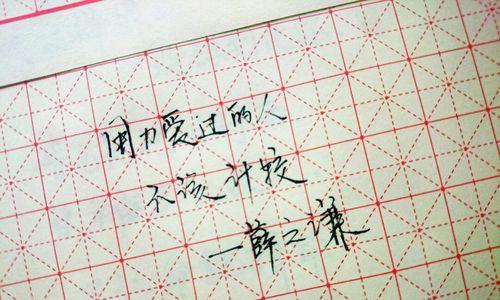 用力爱过的人
不该计较
一薛之谦